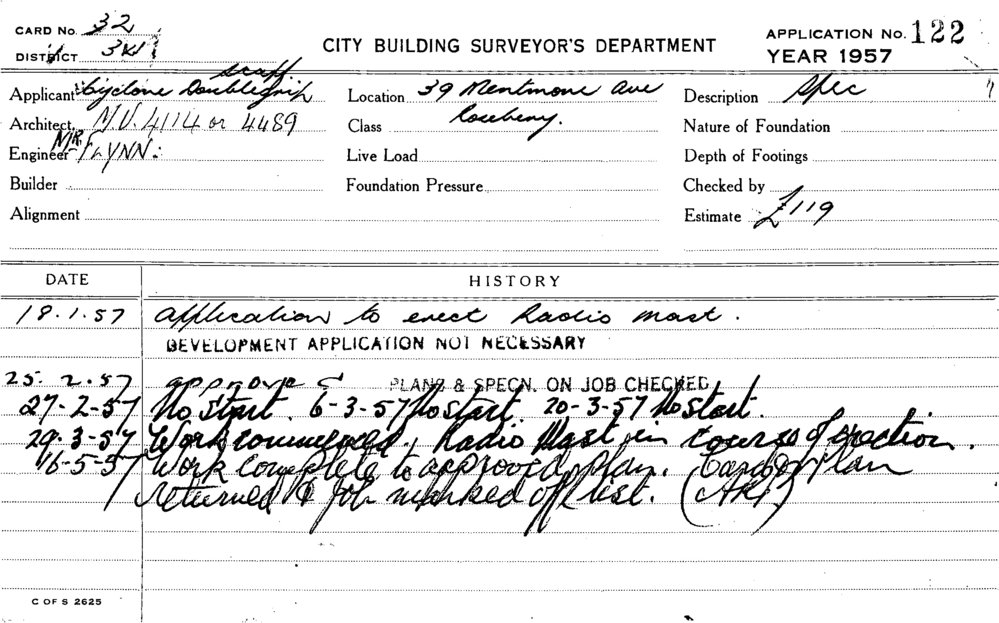 CARD No. 32
DISTRICT
CITY BUILDING SURVEYOR'S DEPARTMENT
APPLICATION No. 122
YEAR 1957
scaff
Applicant Cyclone Doublegrip
Location 39 Mentmore Ave
Description Spec
Architect MU. 4114 or 4489
Class Rosebery.
Nature of Foundation
Engineer MR. FLYNN:
Live Load
Depth of Footings
Builder
Foundation Pressure
Checked by
Alignment
Estimate £119
DATE
HISTORY
18.1.57 Application to erect Radio mast.
DEVELOPMENT APPLICATION NOT NECESSARY
25.2.57 approved PLANS & SPECN. ON JOB CHECKED
27-2-57 No Start. 6-3-57 No Start. 20-3-57 No Start.
29-3-57 Work commenced, Radio Mast in course of erection.
16-5-57 Work complete to approved plan. Card & plan
returned & job marked off list.
C OF S 2625